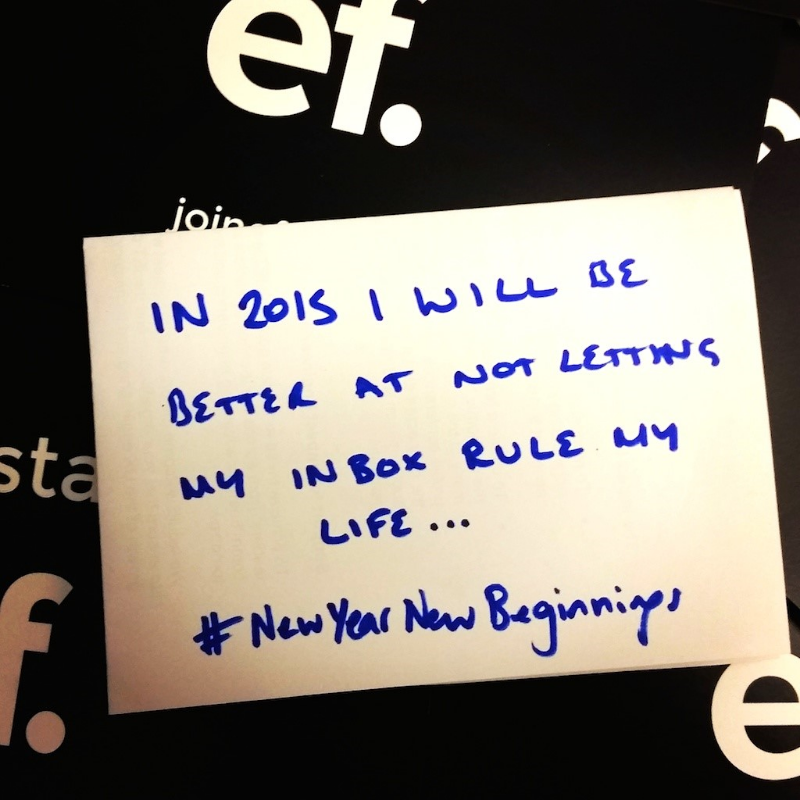 ef.
IN 2015 I WILL BE
BETTER AT NOT LETTING
MY INBOX RULE MY
LIFE...
#NewYearNewBeginnings
sta
f.
e